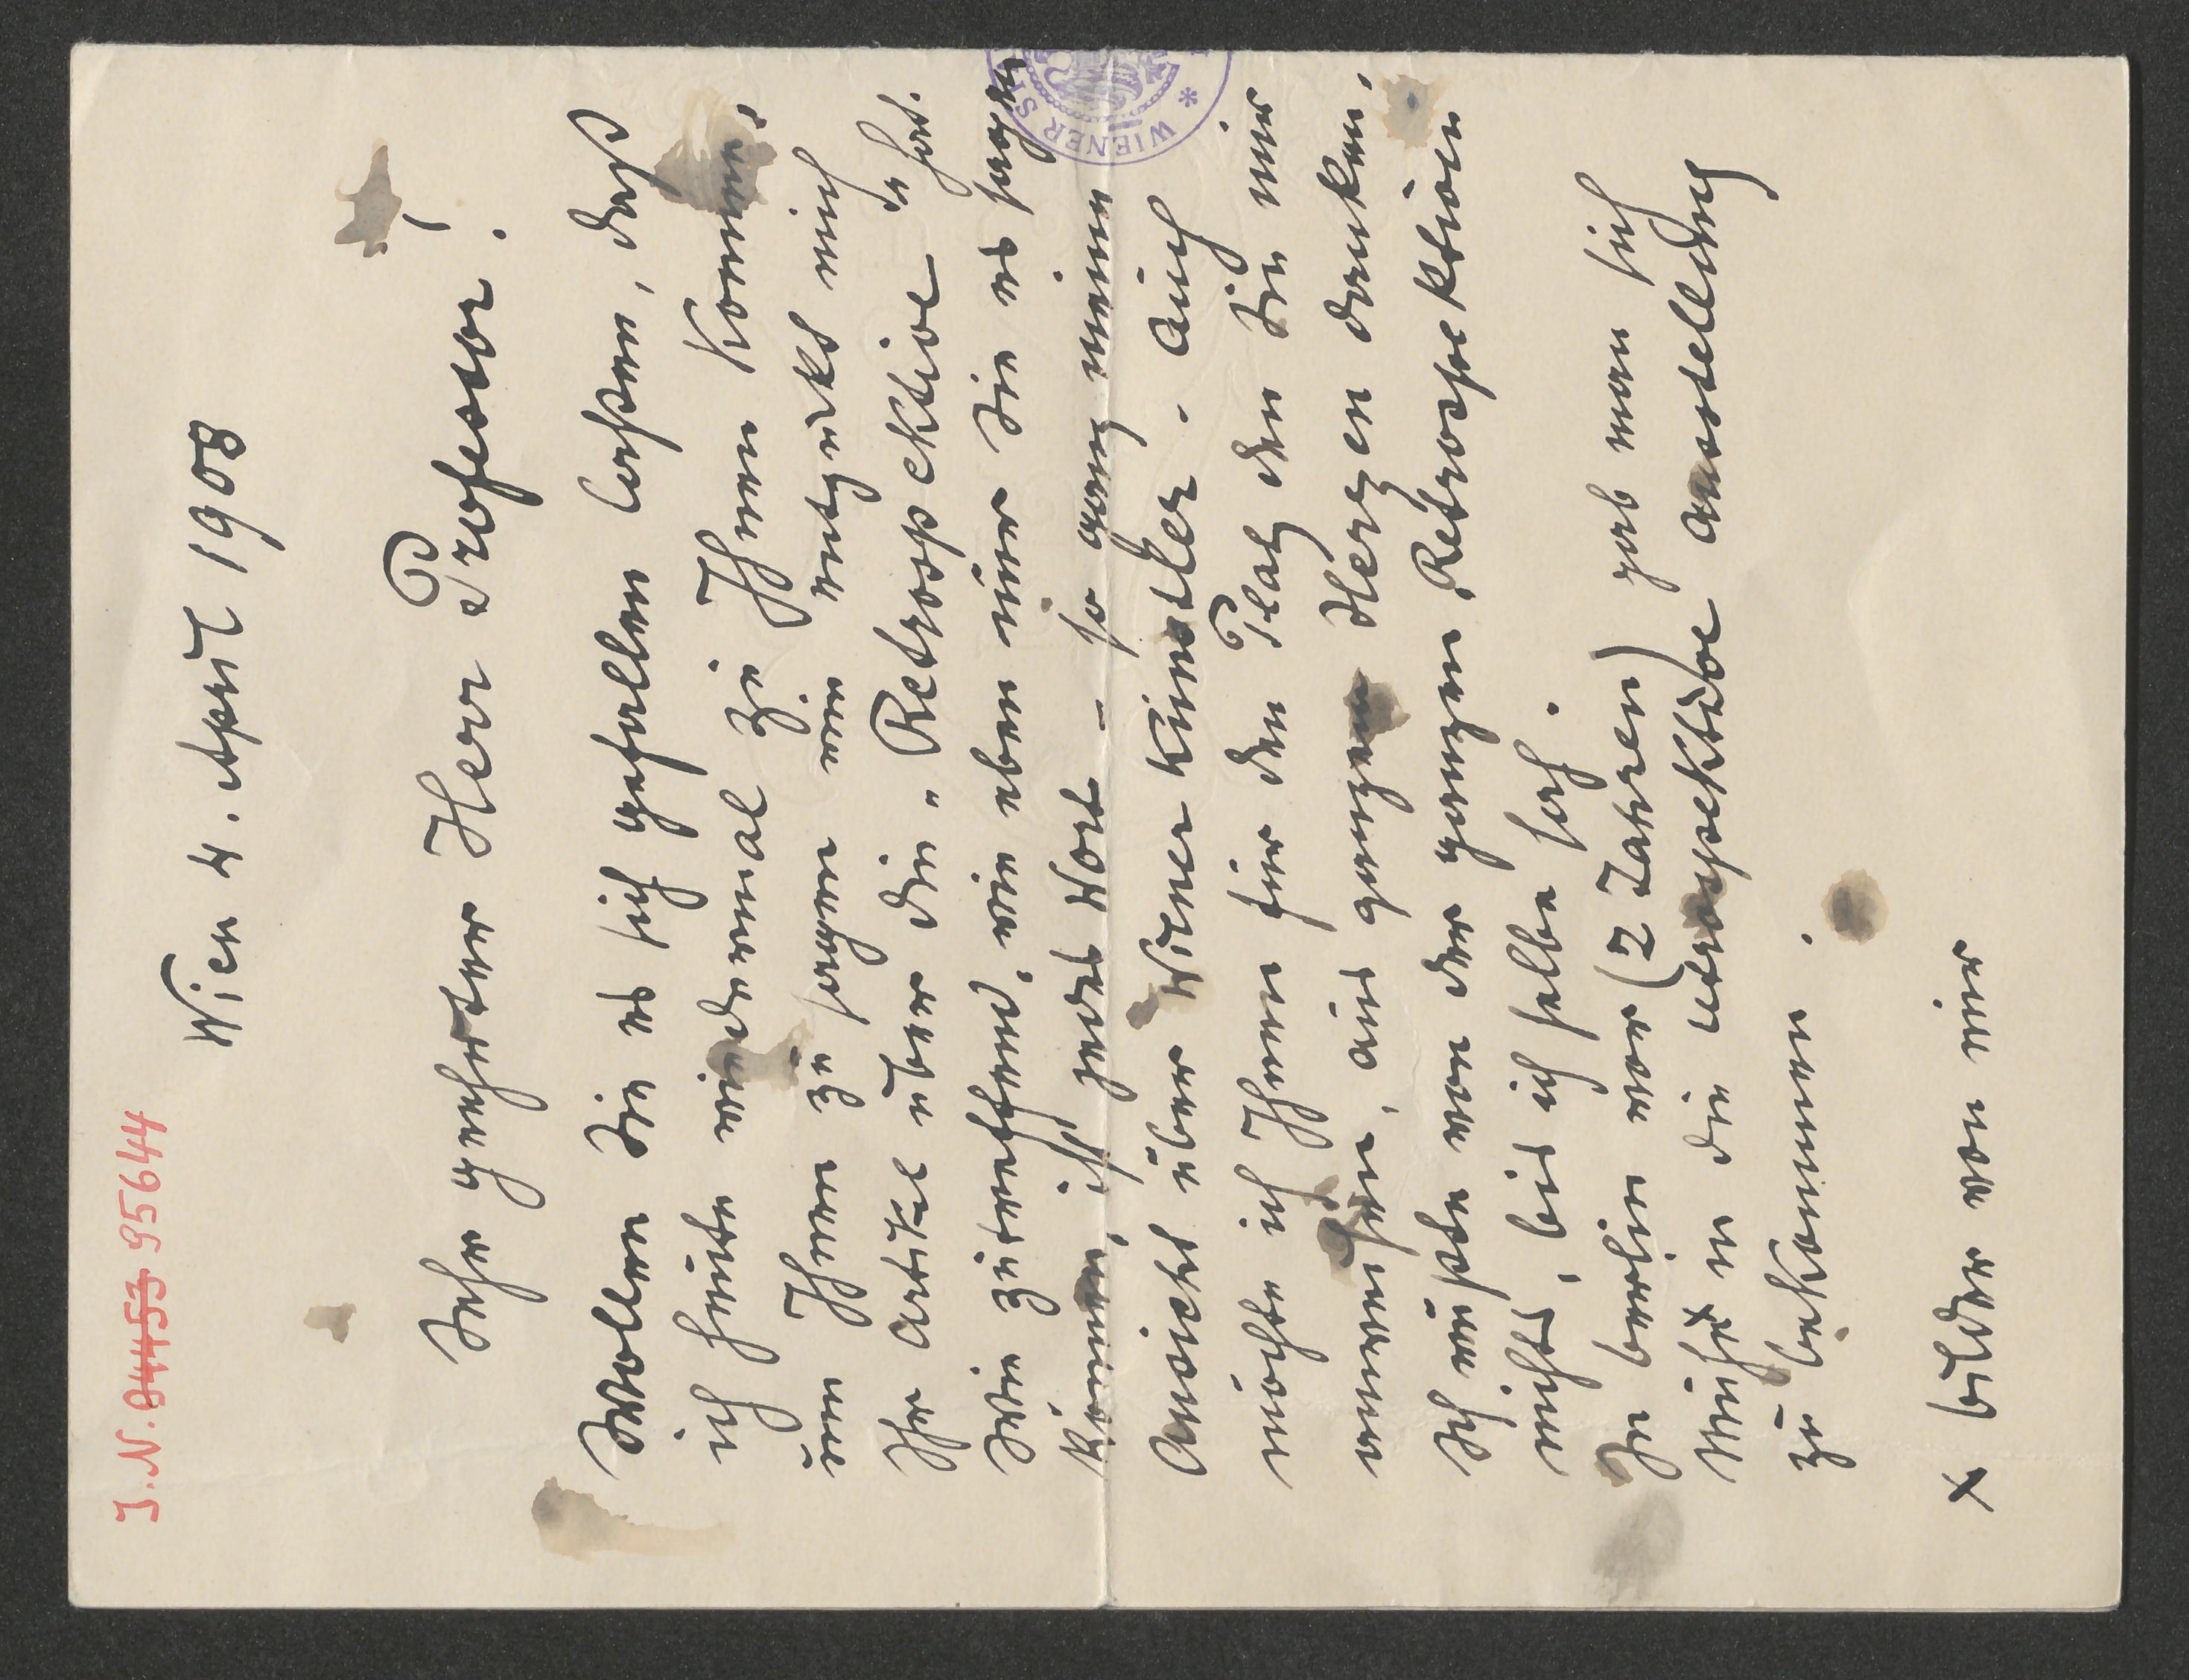 J.N. 94453 95644
Wien 4. April 1908
Sehr geehrter Herr Professor!
Wollen Sie es sich gefallen laßen, daß
ich heute wiedermal zu Ihnen komme,
um Ihnen zu sagen wie entzückt mich
Ihr Artikel über die „Retrospektive" hat.
Wie zutreffend, wie eben nur Sie es sagen
können, ist jedes Wort – so ganz meine
Ansicht über Wiener Künstler. Auch
möchte ich Ihnen für den Platz den Sie mir
anweisen, aus ganzem Herzen danken.
Ich wußte von der ganzen Retrospektion
nichts, bis ich selbe sah.
In Berlin vor (2 Jahren) gab man sich
Mühe x in die retrospektive Ausstellung
zu bekommen.
x bilder von mir
WIENER